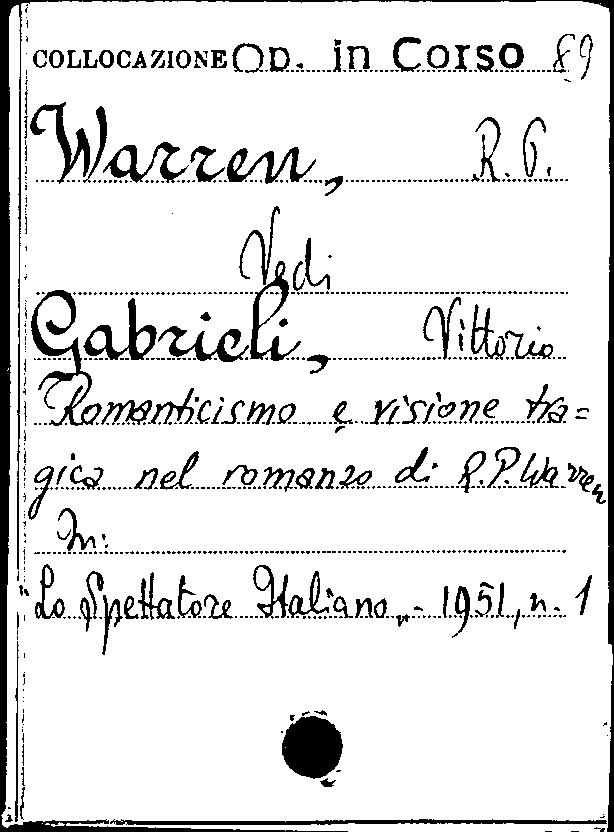 COLLOCAZIONE Op. in Corso 89
Warren, R. P.
Vedi
Gabrieli, Vittorio
Romanticismo e visione tra=
gica nel romanzo di R.P. Warren
In:
"Lo Spettatore Italiano„ - 1951, n. 1